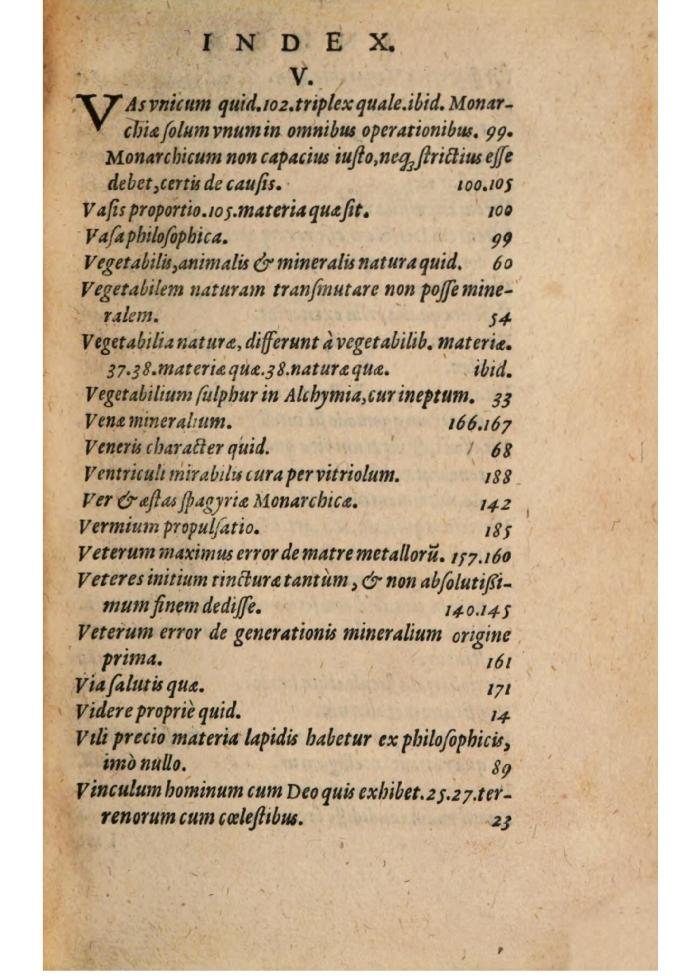 INDEX.
V.
VAs vnicum quid.102.triplex quale.ibid. Monar-
chiæ ſolum vnum in omnibus operationibus. 99.
Monarchicum non capacius iuſto,neqꝫ ſtrictius eſſe
debet,certis de cauſis. 100.105
Vaſis proportio.105.materia quæ ſit. 100
Vaſa philoſophica. 99
Vegetabilis,animalis & mineralis natura quid. 60
Vegetabilem naturam tranſmutare non poſſe mine-
ralem. 54
Vegetabilia naturæ, differunt à vegetabilib. materiæ.
37.38.materiæ quæ.38.naturæ quæ. ibid.
Vegetabilium ſulphur in Alchymia,cur ineptum. 33
Venæ mineralium. 166.167
Veneris character quid. 68
Ventriculi mirabilis cura per vitriolum. 188
Ver & æſtas ſpagyriæ Monarchicæ. 142
Vermium propulſatio. 185
Veterum maximus error de matre metallorū. 157.160
Veteres initium tincturæ tantùm, & non abſolutißi-
mum finem dediſſe. 140.145
Veterum error de generationis mineralium origine
prima. 161
Via ſalutis quæ. 171
Videre propriè quid. 14
Vili precio materia lapidis habetur ex philoſophicis,
imò nullo. 89
Vinculum hominum cum Deo quis exhibet.25.27.ter-
renorum cum cœleſtibus. 23